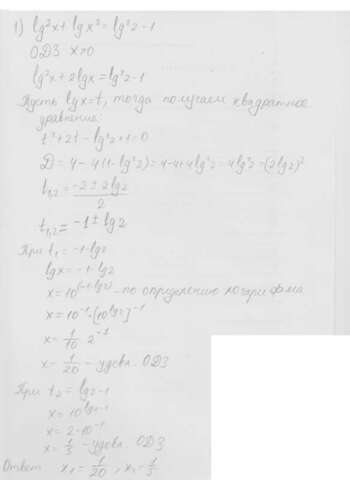 1) lg²x + lg x² = lg²2 - 1
ОДЗ: x>0
lg²x + 2lgx = lg²2 - 1
Пусть lgx = t, тогда получаем квадратное
уравнение:
t² + 2t - lg²2 + 1 = 0
D = 4 - 4(1 - lg²2) = 4 - 4 + 4lg²2 = 4lg²2 = (2lg2)²
t₁,₂ = (-2 ± 2lg2)/2
t₁,₂ = -1 ± lg2
При t₁ = -1 - lg2
lgx = -1 - lg2
x = 10^(-1-lg2) - по определению логарифма
x = 10⁻¹·(10^lg2)⁻¹
x = 1/10 · 2⁻¹
x = 1/20 - удовл. ОДЗ
При t₂ = lg2 - 1
x = 10^(lg2-1)
x = 2·10⁻¹
x = 1/5 - удовл. ОДЗ
Ответ x₁ = 1/20, x₂ = 1/5